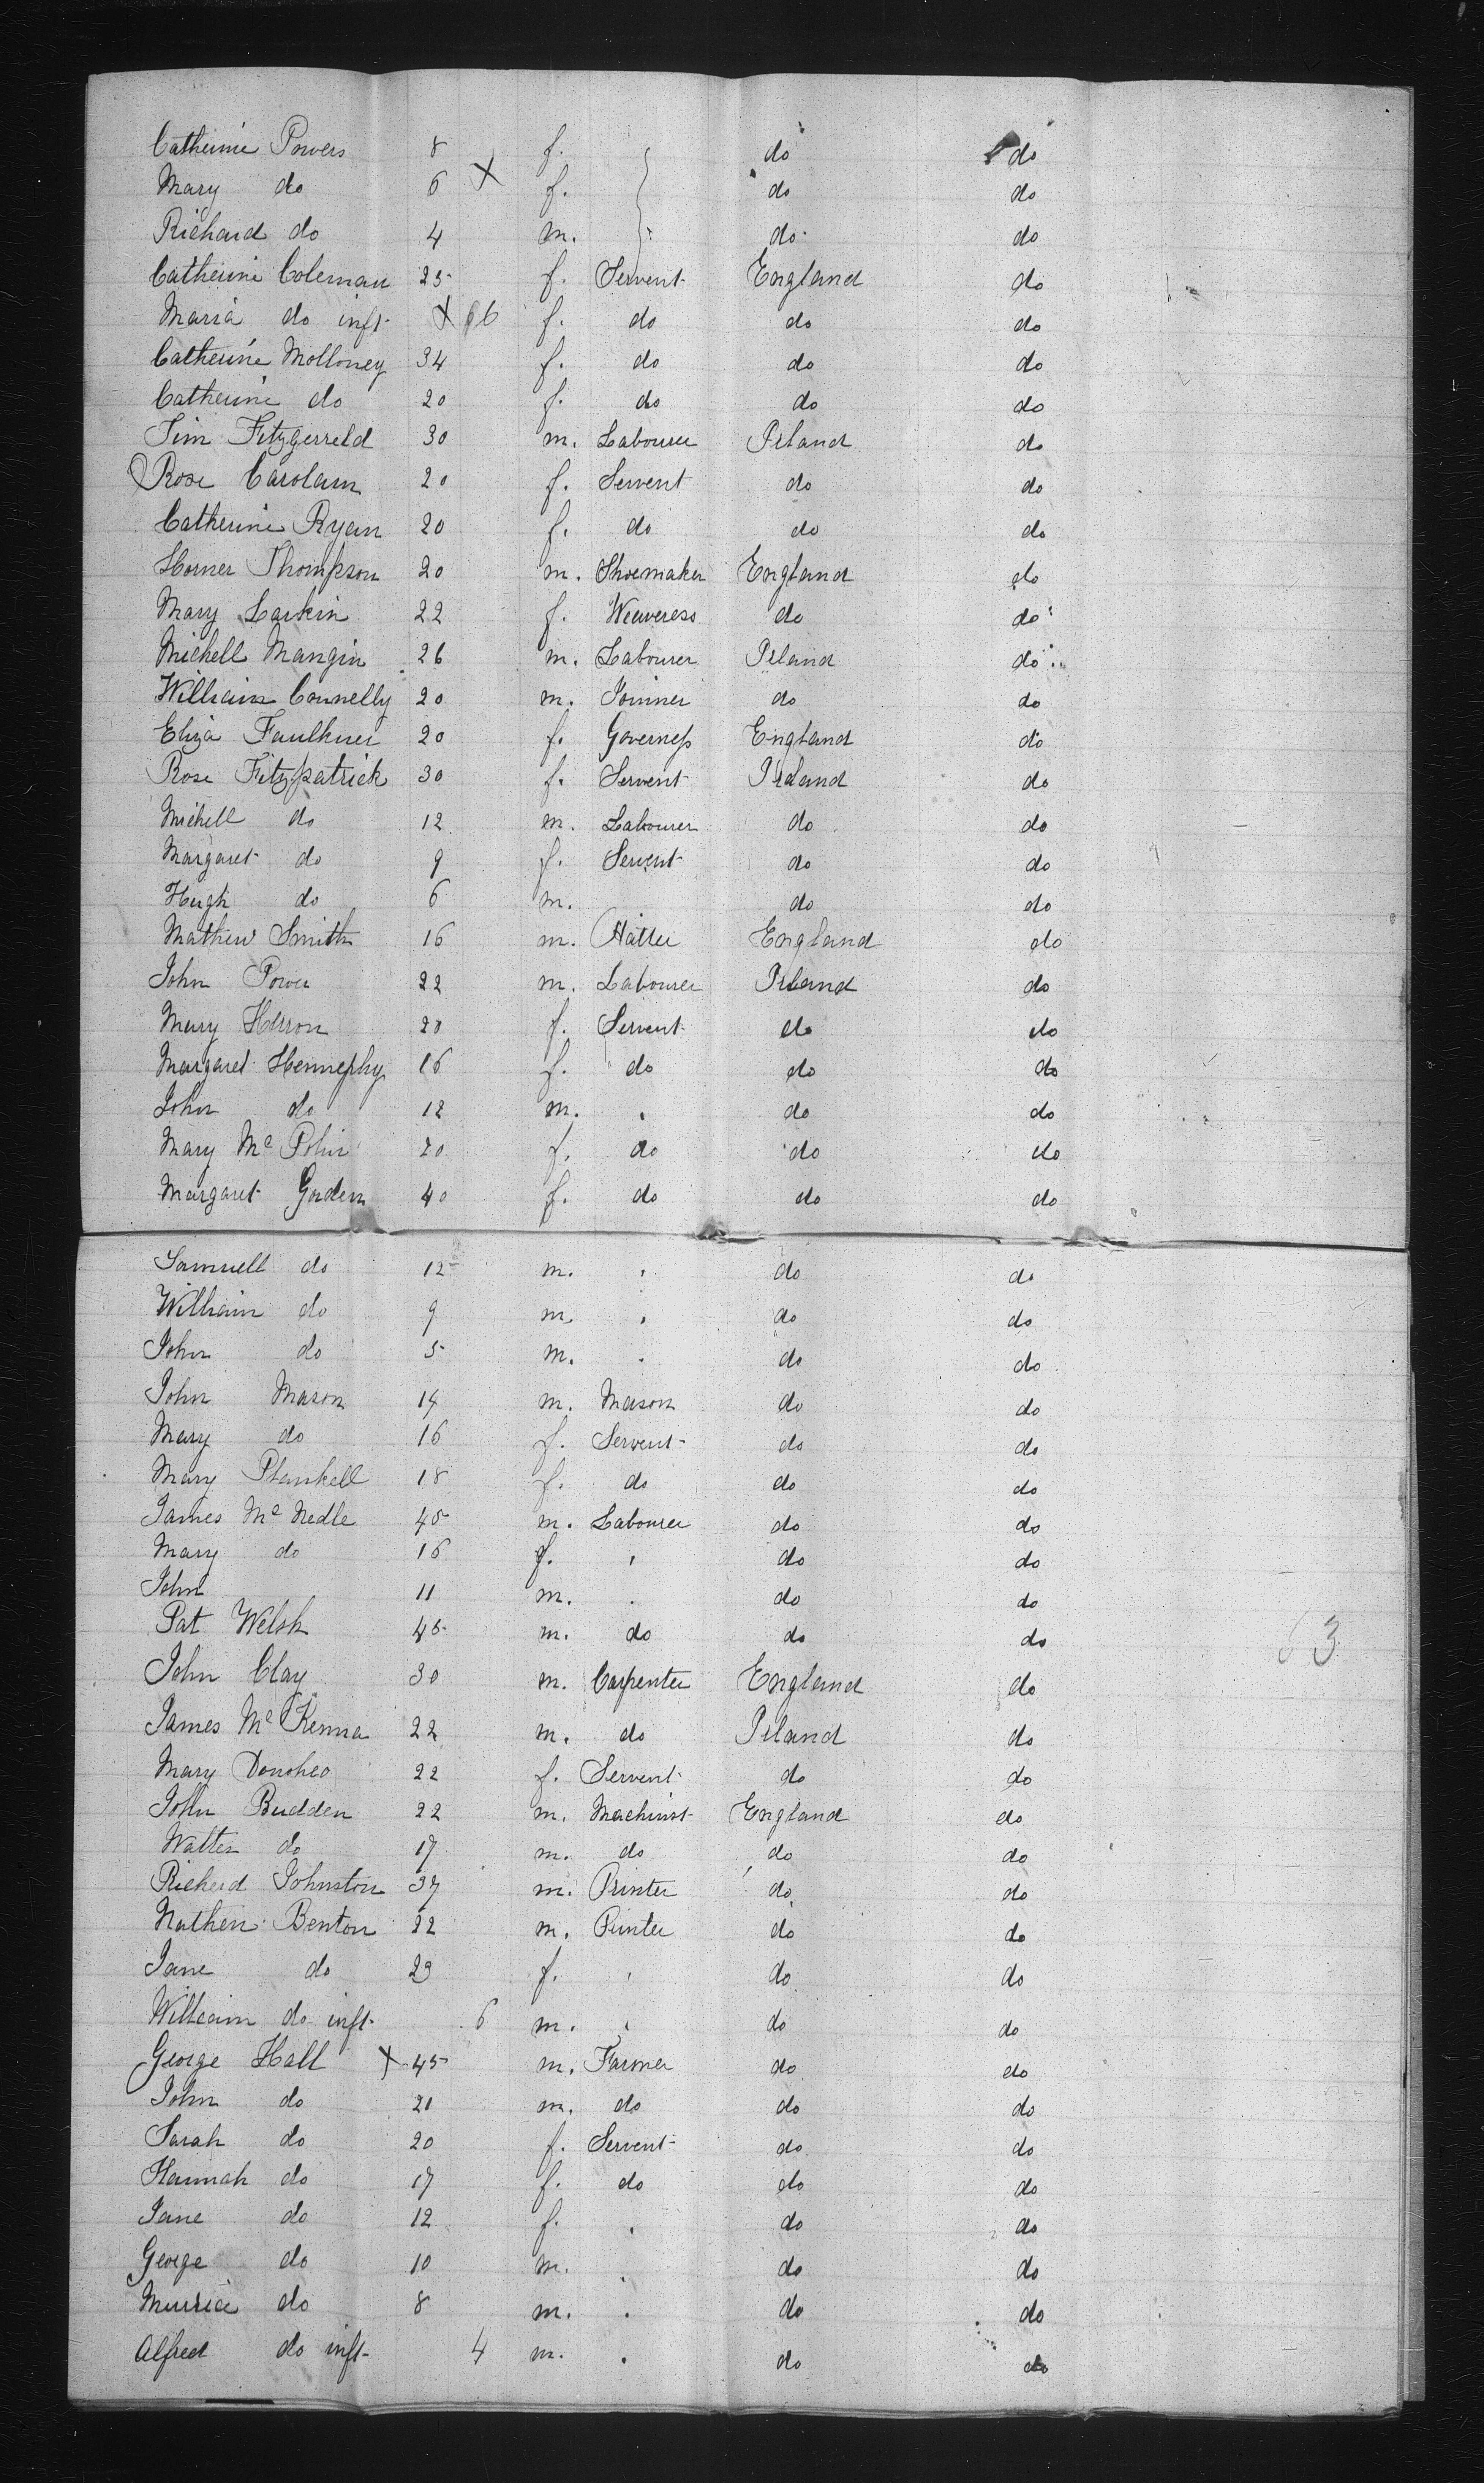 Catherine Powers 8 f. do do
Mary do 6 X f. do do
Richard do 4 m. do do
Catherine Coleman 25 f. Servent England do
Maria do inft X 6 f. do do do
Catherine Molloney 34 f. do do do
Catherine do 20 f. do do do
Jim Fitzgerreld 30 m. Labourer Irland do
Rose Carolam 20 f. Servent do do
Catherine Ryan 20 f. do do do
Horner Thompson 20 m. Shoemaker England do
Mary Larkin 22 f. Weaveress do do
Michell Mangin 26 m. Labourer Irland do
William Connelly 20 m. Joinner do do
Eliza Faulkner 20 f. Governess England do
Rose Fitzpatrick 30 f. Servent Irland do
Michell do 12 m. Labourer do do
Margaret do 9 f. Servent do do
Hugh do 6 m. do do
Mathew Smith 16 m. Hatter England do
John Power 22 m. Labourer Irland do
Mary Herron 20 f. Servent do do
Margaret Hennephy 16 f. do do do
John do 12 m. do do
Mary Mc Polin 20 f. do do do
Margaret Gordern 40 f. do do do
Samuell do 12 m. do do
William do 9 m. do do
John do 5 m. do do
John Mason 14 m. Mason do do
Mary do 16 f. Servent do do
Mary Plankell 18 f. do do do
James Mc Nedle 45 m. Labourer do do
Mary do 16 f. do do
John 11 m. do do
Pat Welsh 45 m. do do do
63
John Clay 30 m. Carpenter England do
James Mc Kenna 22 m. do Irland do
Mary Donoheo 22 f. Servent do do
John Budden 22 m. Machinist England do
Walter do 17 m. do do do
Richerd Johnston 37 m. Printer do do
Nathen Benton 22 m. Printer do do
Jane do 23 f. do do
William do inft 6 m. do do
George Hall X 45 m. Farmer do do
John do 21 m. do do do
Sarah do 20 f. Servent do do
Hannah do 17 f. do do do
Jane do 12 f. do do
George do 10 m. do do
Murrice do 8 m. do do
Alfred do inft 4 m. do do